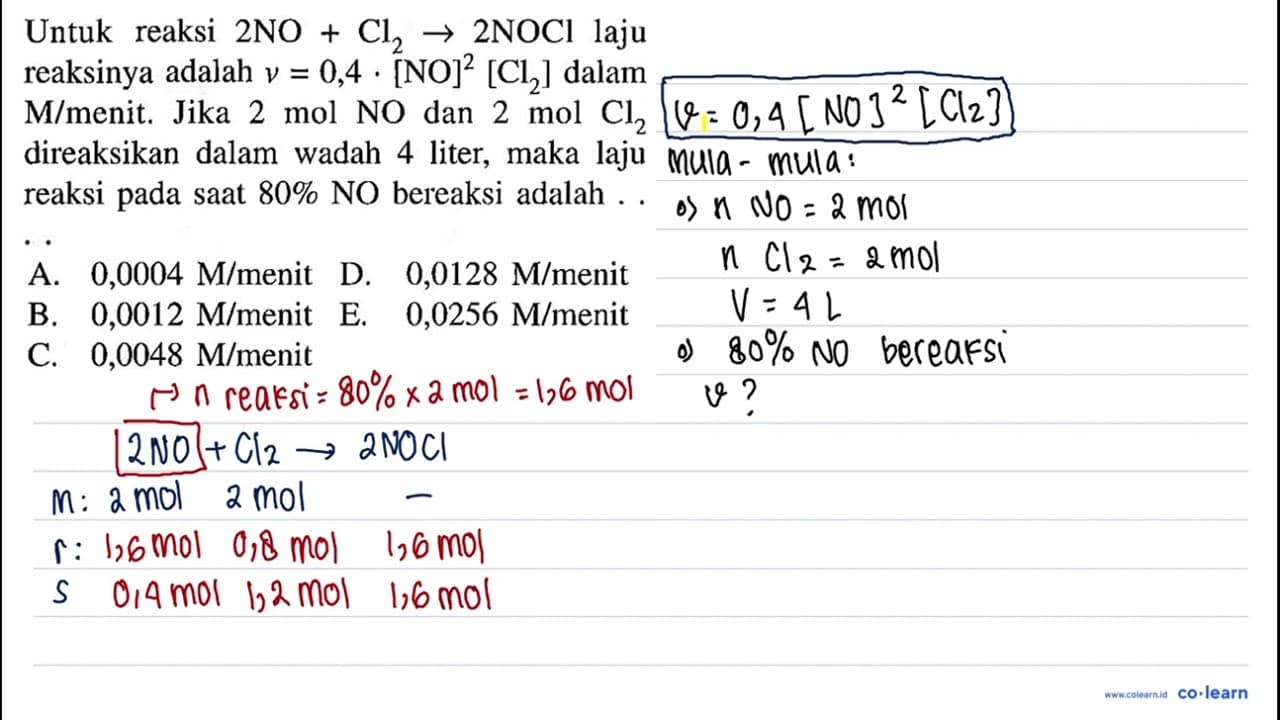 Untuk reaksi 2NO + Cl₂ → 2NOCl laju
reaksinya adalah v = 0,4 · [NO]² [Cl₂] dalam
M/menit. Jika 2 mol NO dan 2 mol Cl₂
direaksikan dalam wadah 4 liter, maka laju
reaksi pada saat 80% NO bereaksi adalah . .
. .
A. 0,0004 M/menit D. 0,0128 M/menit
B. 0,0012 M/menit E. 0,0256 M/menit
C. 0,0048 M/menit
v = 0,4 [NO]² [Cl₂]
mula - mula:
o) n NO = 2 mol
n Cl₂ = 2 mol
V = 4 L
o) 80% NO bereaksi
v ?
↦ n reaksi = 80% × 2 mol = 1,6 mol
2NO + Cl₂ → 2NOCl
m: 2 mol 2 mol –
r: 1,6 mol 0,8 mol 1,6 mol
s 0,4 mol 1,2 mol 1,6 mol
www.colearn.id co·learn